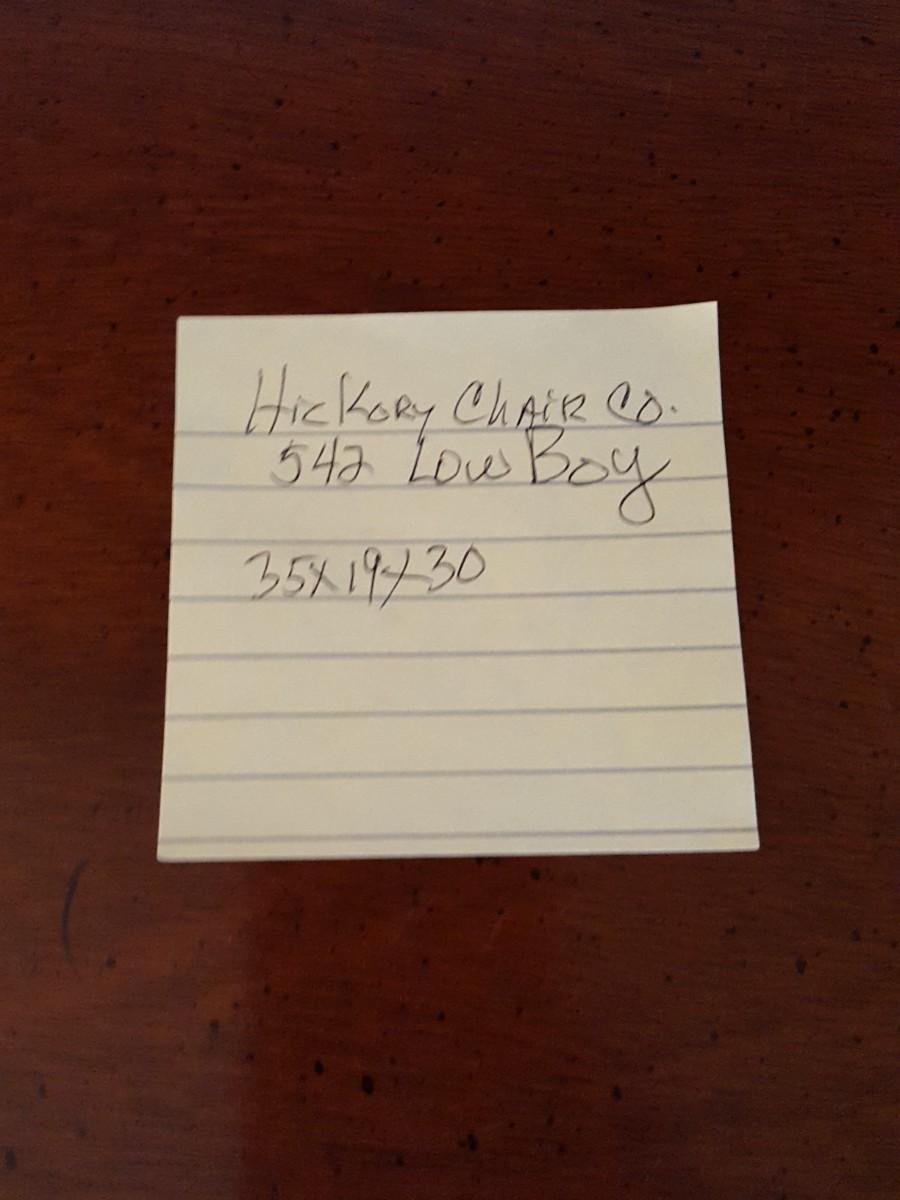 Hickory Chair Co.
542 Low Boy
35x19x30